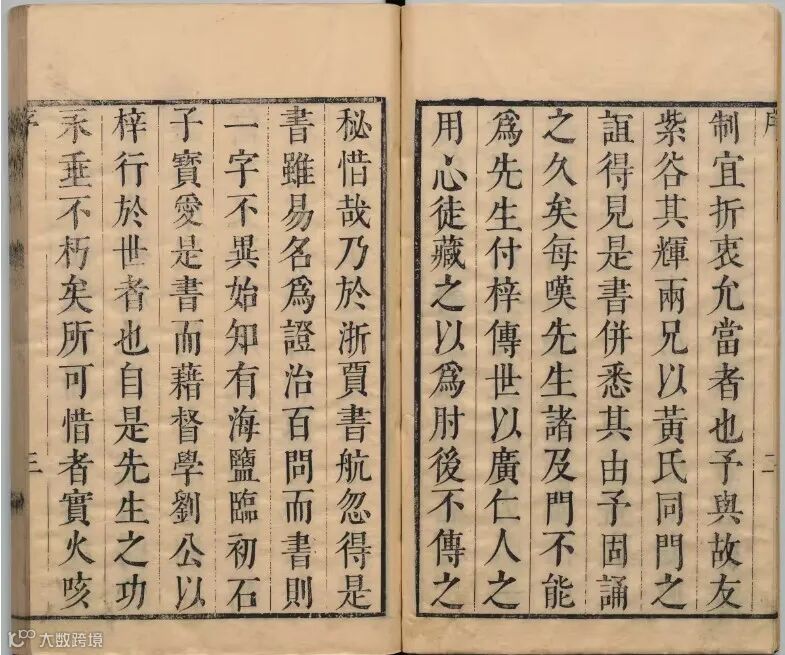 序
二
制宜折衷允當者也予與故友
紫谷其輝兩兄以黃氏同門之
誼得見是書併悉其由予固誦
之久矣每嘆先生諸及門不能
爲先生付梓傳世以廣仁人之
用心徒藏之以爲肘後不傳之
秘惜哉乃於浙賈書航忽得是
書雖易名爲證治百問而書則
一字不異始知有海鹽臨初石
子寶愛是書而藉督學劉公以
梓行於世者也自是先生之功
永垂不朽矣所可惜者實火咳
序
三
大数跨境